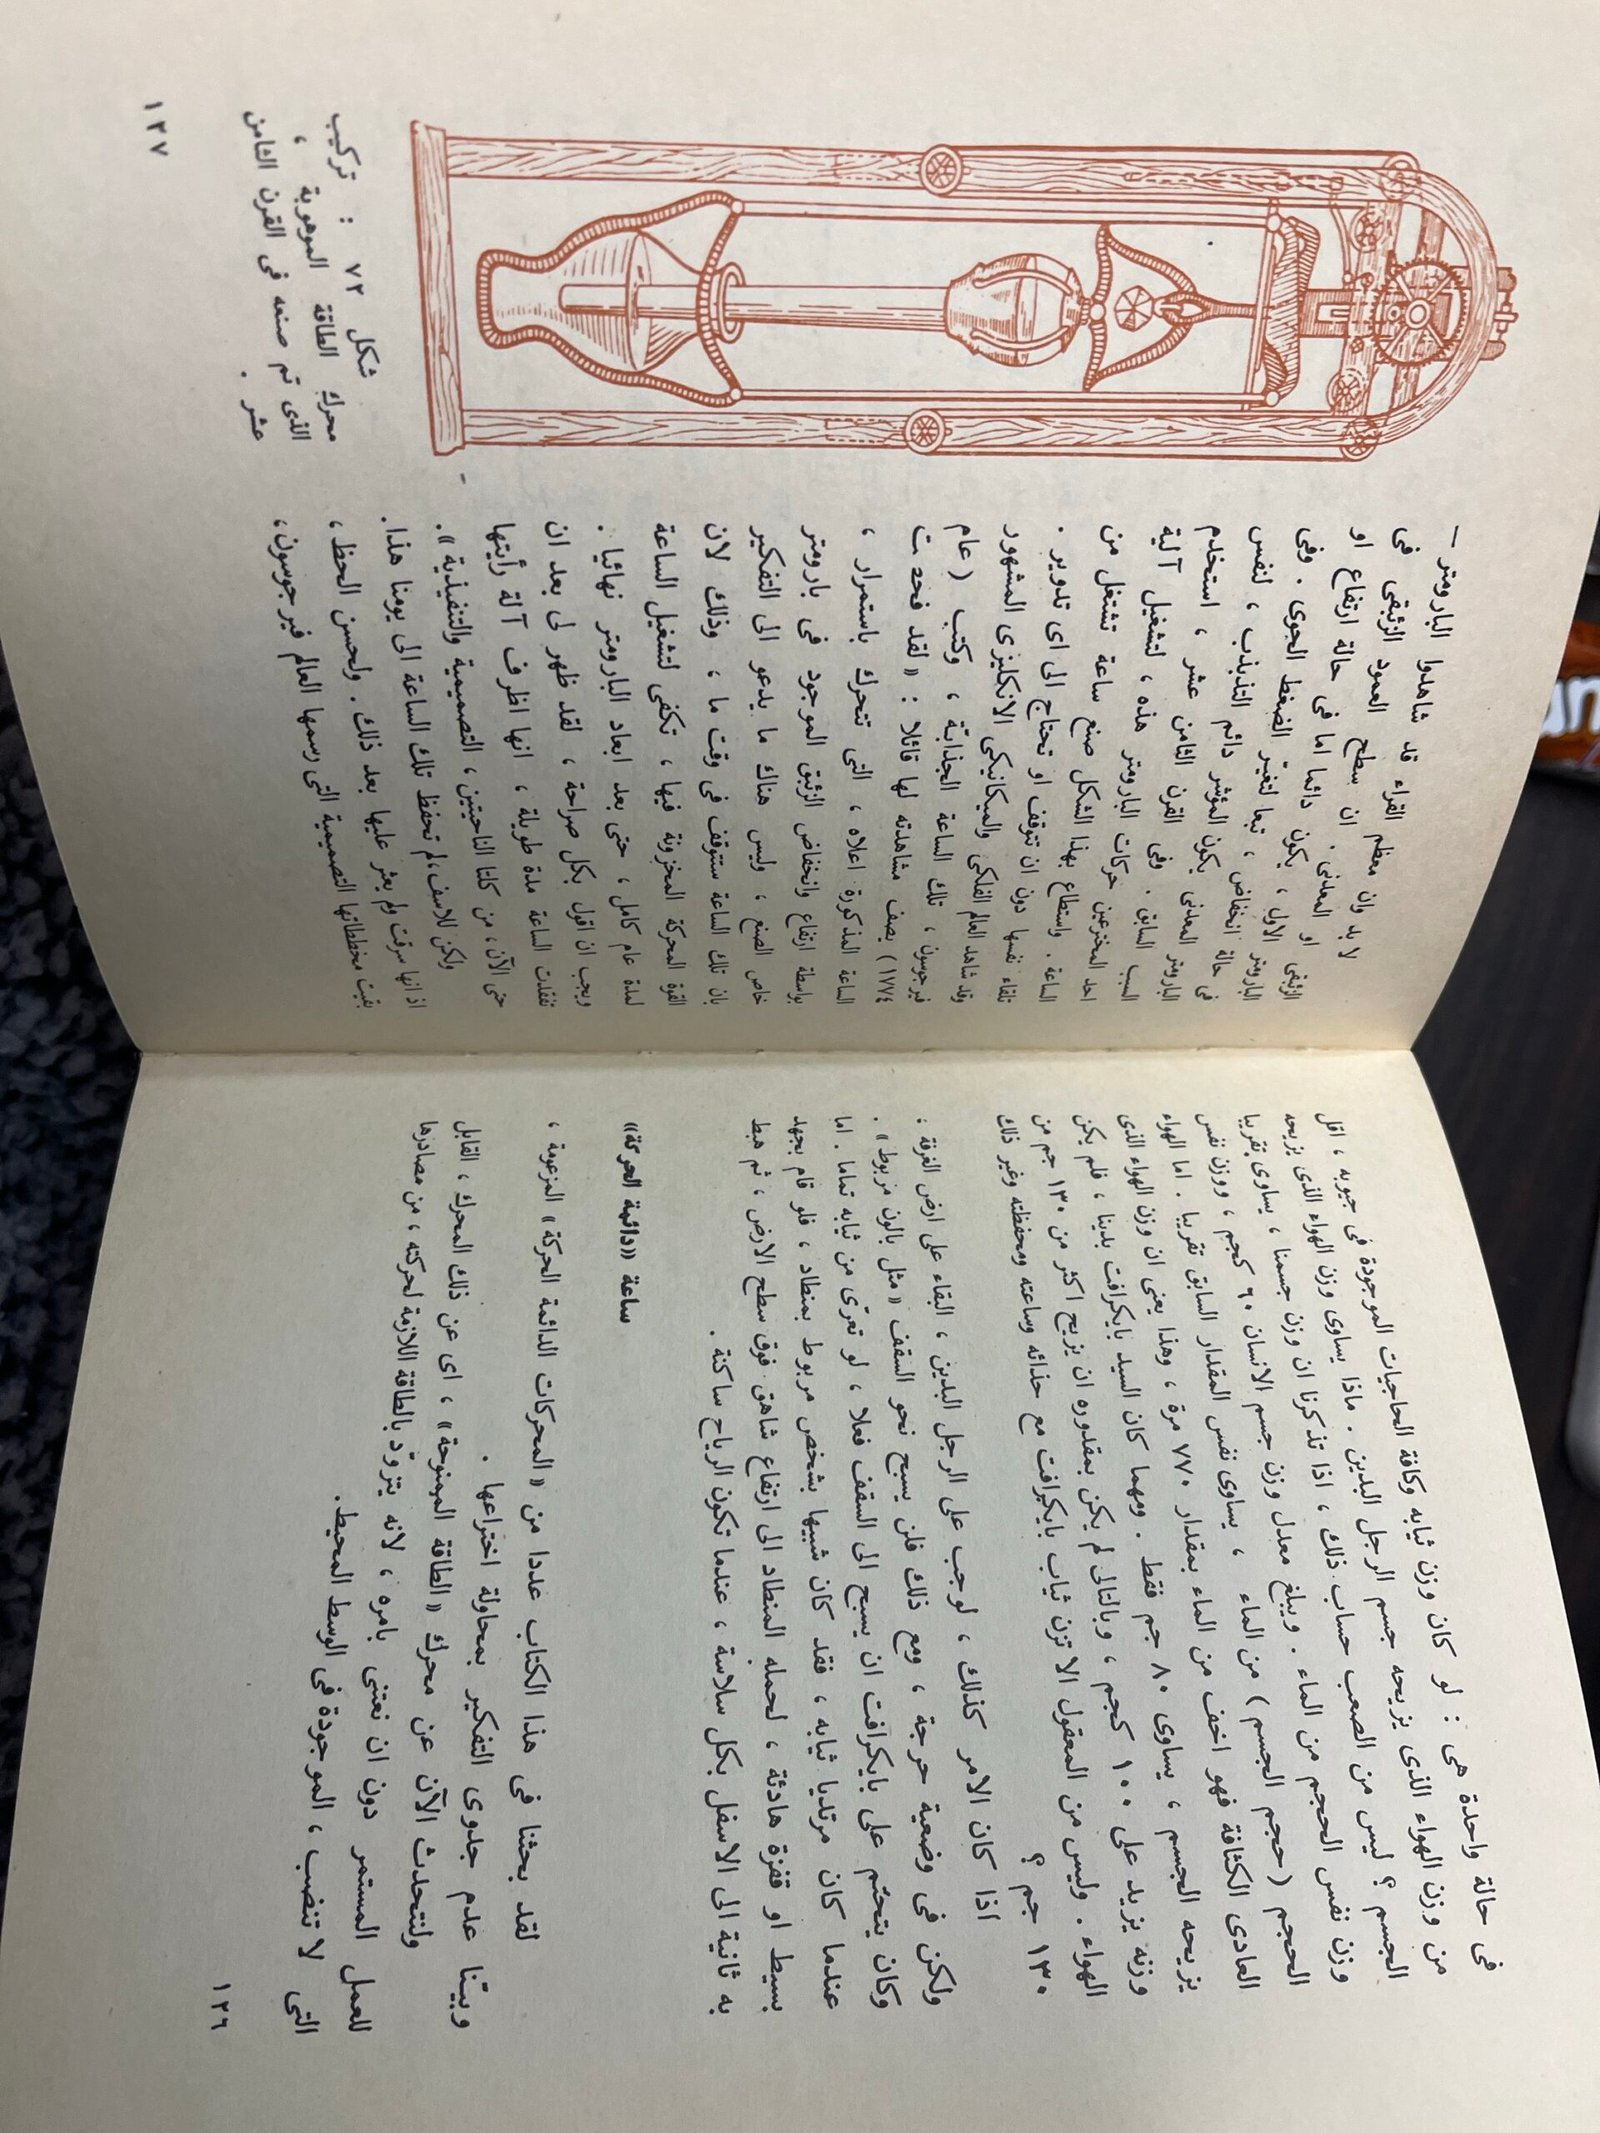 في حالة واحدة هى : لو كان وزن ثيابه وكافة الحاجيات الموجودة فى جيوبه ، اقل
من وزن الهواء الذى يزيحه جسم الرجل البدين . ماذا يساوى وزن الهواء الذى يزيحه
الجسم ؟ ليس من الصعب حساب ذلك ، اذا تذكرنا ان وزن جسمنا ، يساوى تقريبا
وزن نفس الحجم من الماء . ويبلغ معدل وزن جسم الانسان ٦٠ كجم ، ووزن نفس
الحجم (حجم الجسم) من الماء ، يساوى نفس المقدار السابق تقريبا . اما الهواء
العادى الكثافة فهو اخف من الماء بمقدار ٧٧٠ مرة ، وهذا يعنى ان وزن الهواء الذى
يزيحه الجسم ، يساوى ٨٠ جم فقط . ومهما كان السيد بايكرافت بدينا ، فلم يكن
وزنه يزيد على ١٠٠ كجم ، وبالتالى لم يكن بمقدوره ان يزيح اكثر من ١٣٠ جم من
الهواء . وليس من المعقول الا تزن ثياب بايكرافت مع حذائه وساعته ومحفظته وغير ذلك
١٣٠ جم ؟
اذا كان الامر كذلك ، لوجب على الرجل البدين ، البقاء على ارض الغرفة ؛
ولكن فى وضعية حرجة ، ومع ذلك فلن يسبح نحو السقف «مثل بالون مربوط» .
وكان يتحتّم على بايكرافت ان يسبح الى السقف فعلا ، لو تعرّى من ثيابه تماما . اما
عندما كان مرتديا ثيابه ، فقد كان شبيها بشخص مربوط بمنطاد ، فلو قام بجهد
بسيط او قفزة هادئة ، لحمله المنطاد الى ارتفاع شاهق فوق سطح الارض ، ثم هبط
به ثانية الى الاسفل بكل سلاسة ، عندما تكون الرياح ساكنة .
ساعة «دائمة الحركة»
لقد بحثنا فى هذا الكتاب عددا من «المحركات الدائمة الحركة» المزعومة ،
وبيّنا عدم جدوى التفكير بمحاولة اختراعها .
ولنتحدث الآن عن محرك «الطاقة الممنوحة» ، اى عن ذلك المحرك ، القابل
للعمل المستمر دون ان نعتنى بامره ، لانه يتزوّد بالطاقة اللازمة لحركته ، من مصادرها
التى لا تنضب ، الموجودة فى الوسط المحيط .
١٢٦
لا بد وان معظم القراء قد شاهدوا البارومتر —
الزئبقى او المعدنى . ان سطح العمود الزئبقى فى
البارومتر الاول ، يكون دائما اما فى حالة ارتفاع او
فى حالة انخفاض ، تبعا لتغيّر الضغط الجوى . وفى
البارومتر المعدنى يكون المؤشر دائم التذبذب ، لنفس
السبب السابق . وفى القرن الثامن عشر ، استخدم
احد المخترعين حركات البارومتر هذه ، لتشغيل آلية
الساعة . واستطاع بهذا الشكل صنع ساعة تشتغل من
تلقاء نفسها دون ان تتوقف او تحتاج الى اى تدوير .
وقد شاهد العالم الفلكى والميكانيكى الانكليزى المشهور
فيرجوسون ، تلك الساعة الجذابة ، وكتب (عام
١٧٧٤) يصف مشاهدته لها قائلا : «لقد فحصت
الساعة المذكورة اعلاه ، التى تتحرك باستمرار ،
بواسطة ارتفاع وانخفاض الزئبق الموجود فى بارومتر
خاص الصنع ، وليس هناك ما يدعو الى التفكير
بان تلك الساعة ستتوقف فى وقت ما ، وذلك لان
القوة المحركة المخزونة فيها ، تكفى لتشغيل الساعة
لمدة عام كامل ، حتى بعد ابعاد البارومتر نهائيا .
ويجب ان اقول بكل صراحة ، لقد ظهر لى بعد ان
تفقدت الساعة مدة طويلة ، انها اظرف آلة رأيتها
حتى الآن ، من كلتا الناحيتين ، التصميمية والتنفيذية» .
ولكن للاسف ، لم تحفظ تلك الساعة الى يومنا هذا .
اذ انها سرقت ولم يعثر عليها بعد ذلك . ولحسن الحظ ،
بقيت مخططاتها التصميمية التى رسمها العالم فيرجوسون ،
شكل ٧٢ : تركيب
محرك الطاقة الموهوبة ،
الذى تم صنعه فى القرن الثامن
عشر .
١٢٧